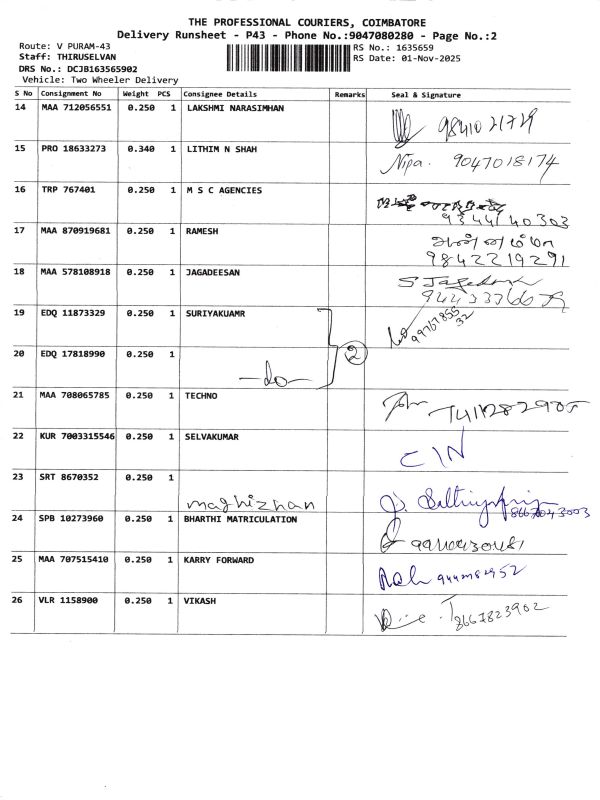 THE PROFESSIONAL COURIERS, COIMBATORE
Delivery Runsheet - P43 - Phone No.:9047080280 - Page No.:2
Route: V PURAM-43 RS No.: 1635659
Staff: THIRUSELVAN RS Date: 01-Nov-2025
DRS No.: DCJB163565902
Vehicle: Two Wheeler Delivery
S No Consignment No Weight PCS Consignee Details Remarks Seal & Signature
14 MAA 712056551 0.250 1 LAKSHMI NARASIMHAN
9841021729
15 PRO 18633273 0.340 1 LITHIM N SHAH
Nipa. 9047018174
16 TRP 767401 0.250 1 M S C AGENCIES
9344140303
17 MAA 870919681 0.250 1 RAMESH
9842219291
18 MAA 578108918 0.250 1 JAGADEESAN
19 EDQ 11873329 0.250 1 SURIYAKUAMR
20 EDQ 17818990 0.250 1 2
-do-
21 MAA 708065785 0.250 1 TECHNO
22 KUR 7003315546 0.250 1 SELVAKUMAR
23 SRT 8670352 0.250 1
maghizhan
8667043003
24 SPB 10273960 0.250 1 BHARTHI MATRICULATION
25 MAA 707515410 0.250 1 KARRY FORWARD
26 VLR 1158900 0.250 1 VIKASH
8667823902